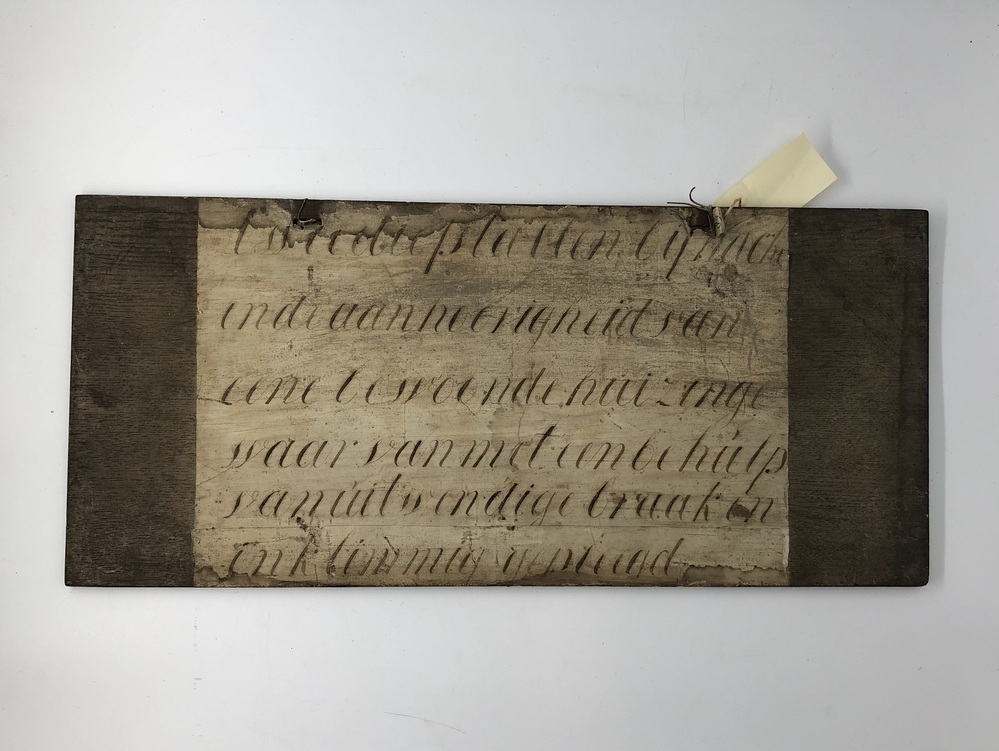 twee diefstallen by nacht
in de aanhoerigheid van
eene bewoonde huizinge
waar van met een behulp
van uitwendige braak en
inklimmig gepleegd